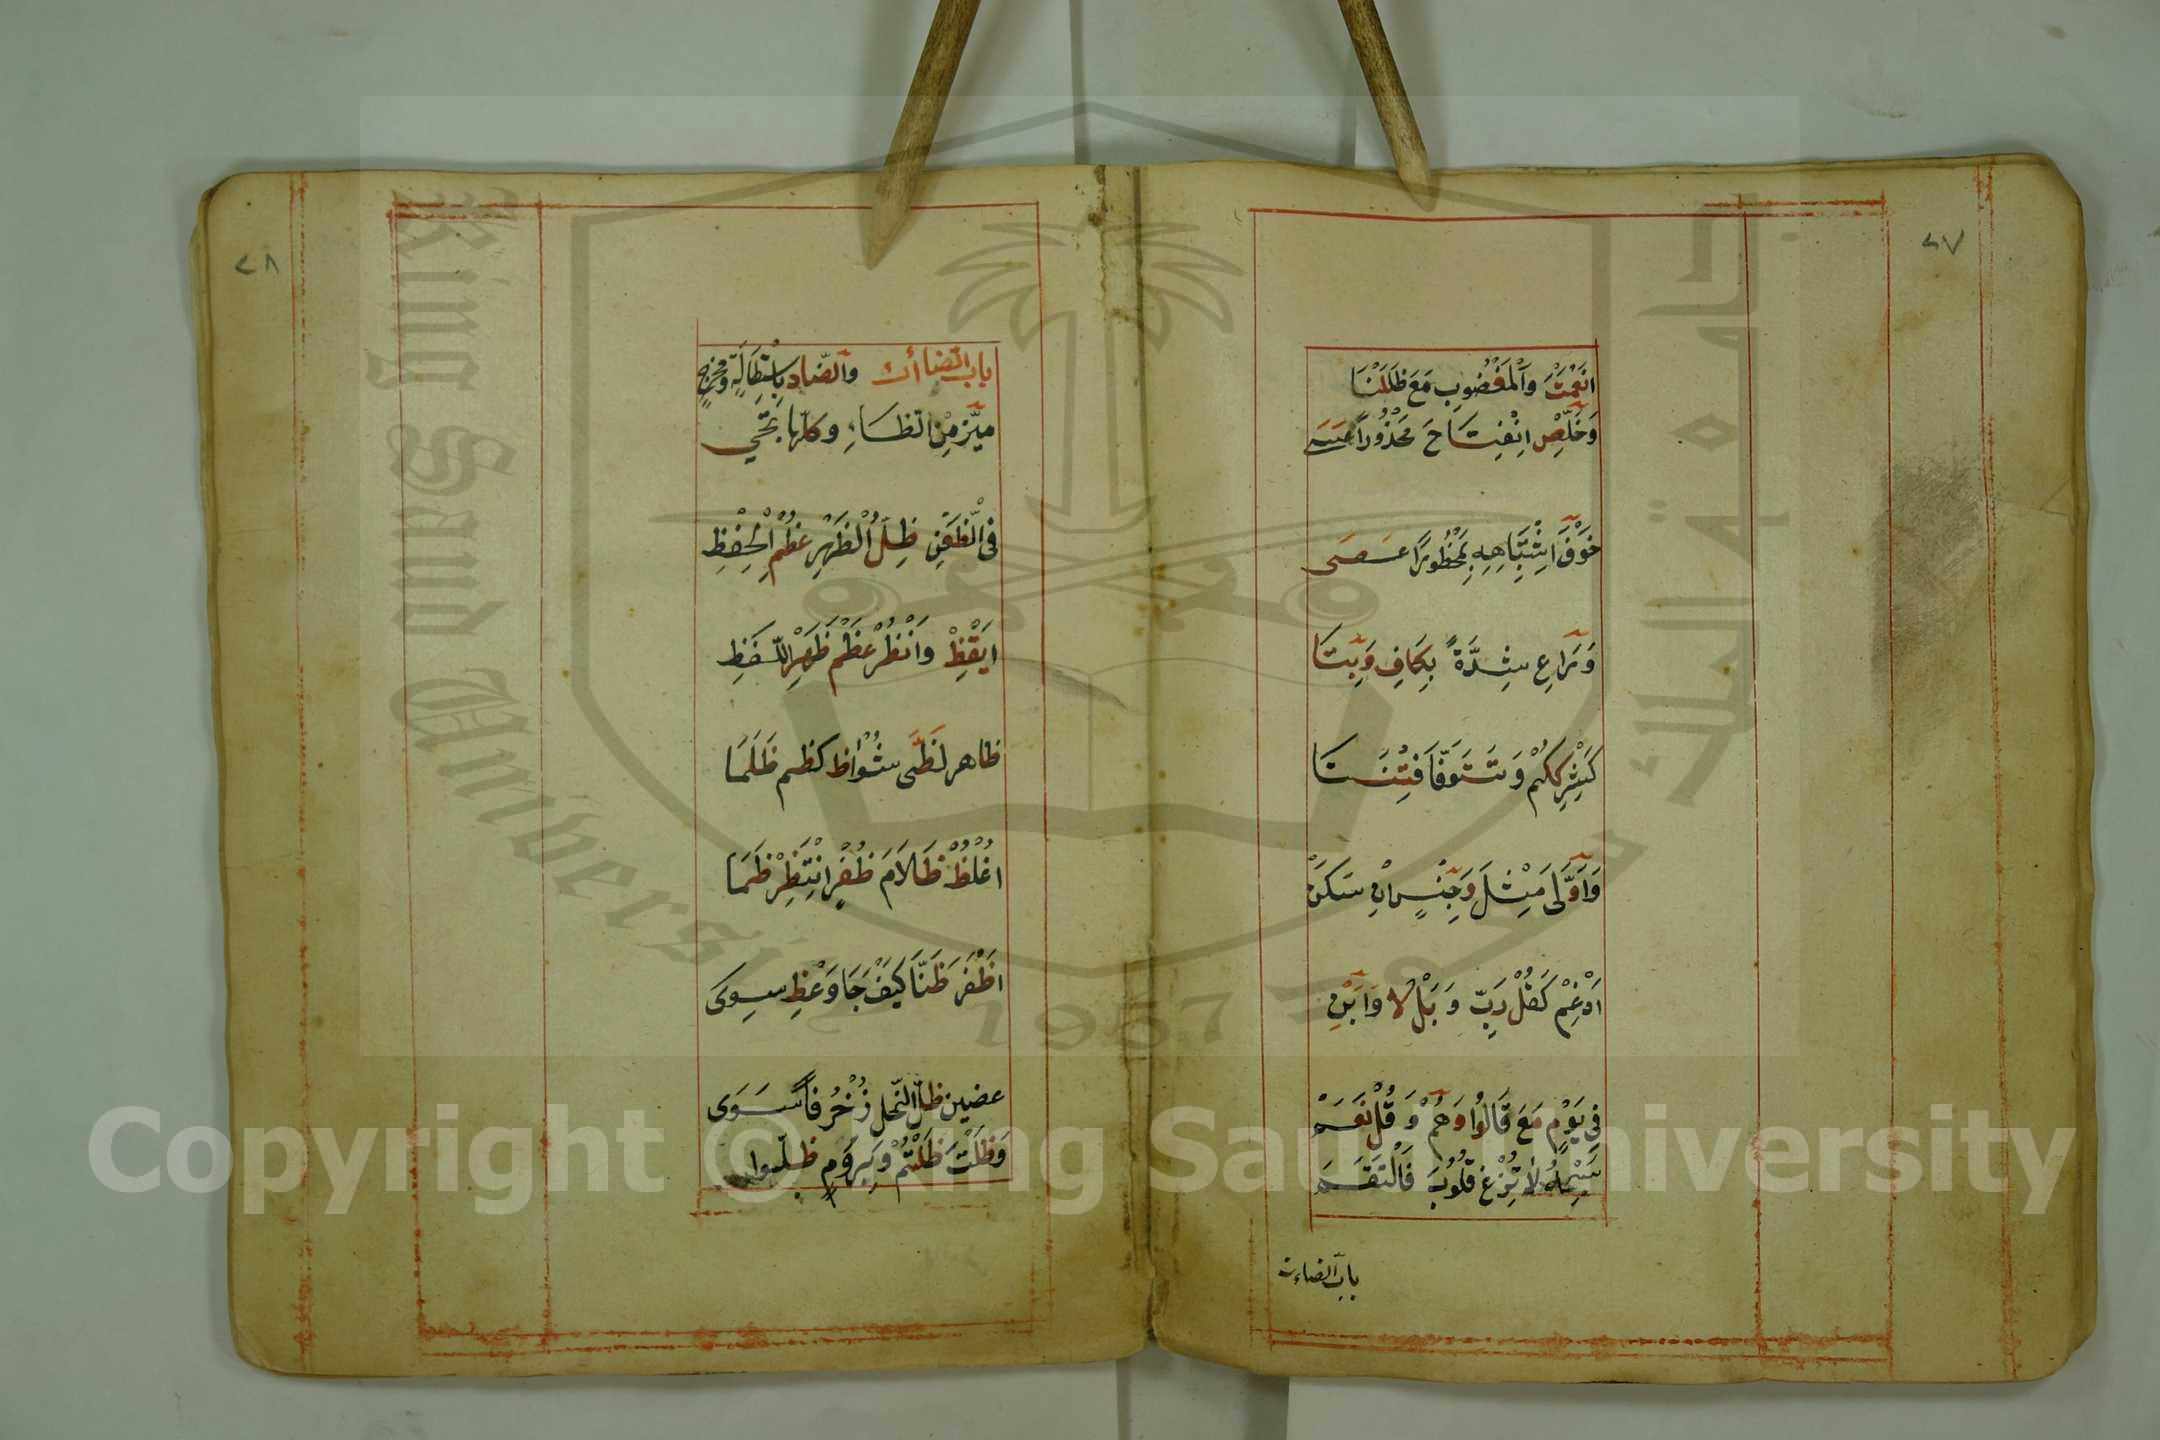 ٢٧
انْعَمْتَ وَالْمَغْضُوبِ مَعَ ظَلَلْنَا
وَخَلِّصِ انْفِتَاحَ مَحْذُورًا عَسَى
خَوْفَ اشْتِبَاهِهِ بِمَحْظُورًا عَصَى
وَرَاعِ شِدَّةً بِكَافٍ وَبِتَا
كَشِرْكِكُمْ وَتَتَوَفَّا فِتْنَتَا
وَاَوَّلَى مِثْلَ وَجِنْسٍ اِنْ سَكَنْ
اَدْغِمْ كَقُلْ رَبِّ وَبَلْ لا وَاَبِنْ
فِي يَوْمٍ مَعَ قَالُوا وَهُمْ وَقُلْ نَعَمْ
سَبِّحْهُ لاَ تُزِغْ قُلُوبَ فَالْتَقَمَ
باب الضاءت
٢٨
باب الضاأت وَالضَّادِ بِاسْتِطَالَةٍ وَمَخْرَجٍ
مَيِّزْ مِنَ الظَاءِ وَكُلُّهَا تَجِي
فِي الظَّعْنِ ظِلُّ الْظَهْرِ عُظْمُ الْحِفْظِ
اَيْقِظْ وَاَنْظُرْ عَظْمَ ظَهْرِ اللَّفْظِ
ظاهر لَظَى شُوَاظ كظم ظَلَمَا
اُغْلُظْ ظَلاَمَ ظُفْرٍ انْتَظِرْ ظَمَا
اَظْفَرَ ظَنًّا كَيْفَ جَا وَعْظِ سِوَى
عضين ظلّ النّحل زُخْرُفًا سَوَى
وَظَلْتَ ظَلْتُمْ وَبِرُومٍ ظلّوا
Copyright © King Saud University
King Saud University
جامعة الملك سعود
1957